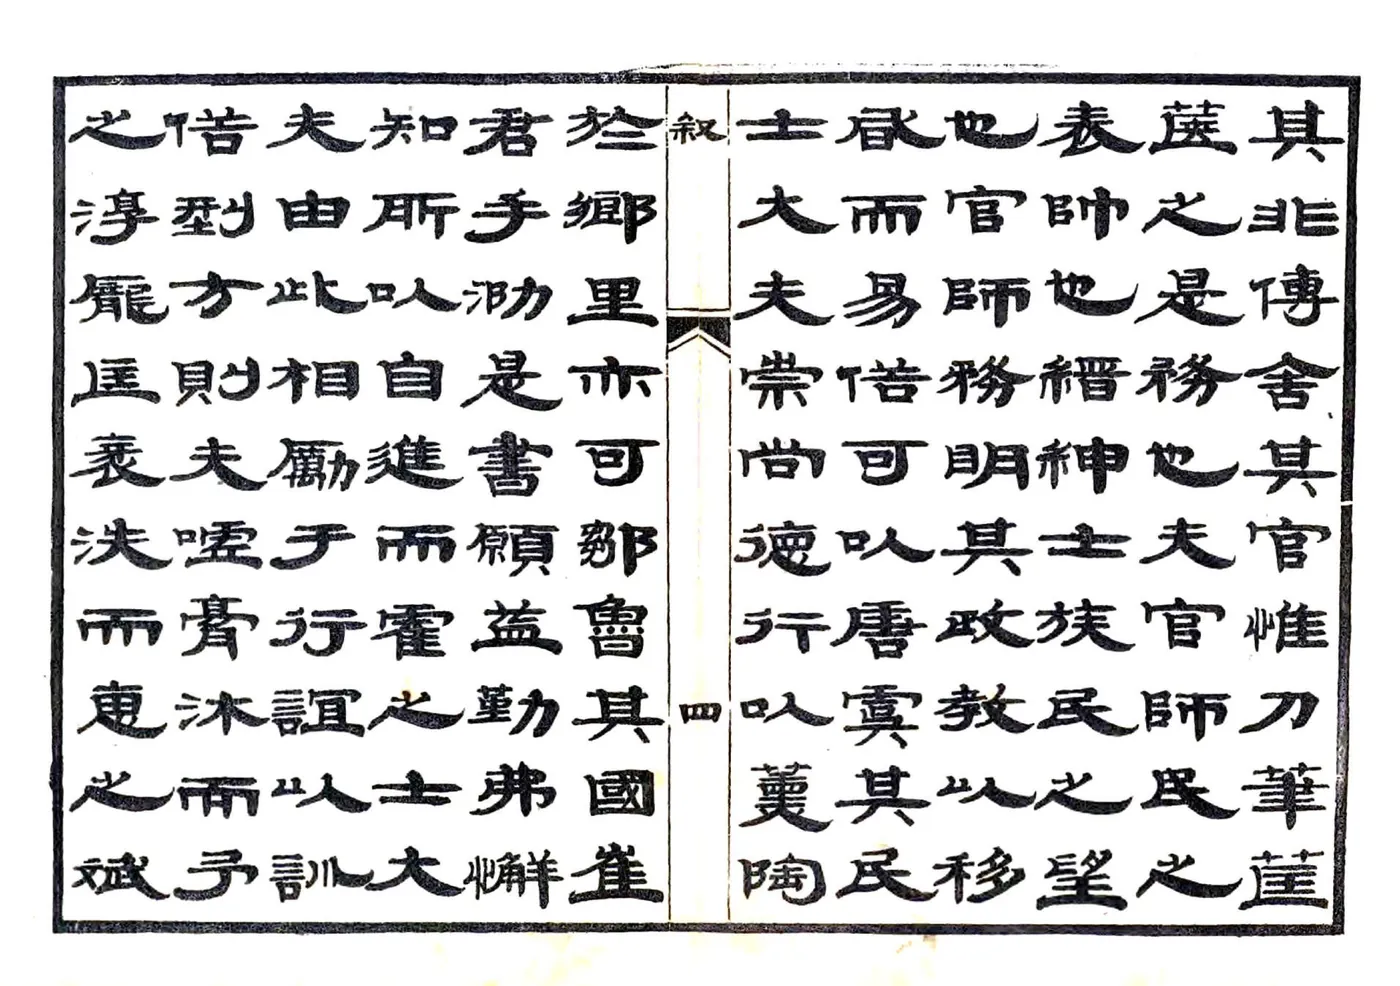 其非傳舍其官惟刀筆筐
篋之是務也夫官師民之
表帥也縉紳士族民之望
也官師務明其政教以移
風而易俗可以唐虞其民
士大夫崇尚德行以薰陶
敘
四
於鄉里亦可鄒魯其國崔
君手泐是書願益勤弗懈
知所以自進而霍之士大
夫由此相勵于行誼以訓
俗型方則夫噓膏沐而予
之淳龎匡衺泆而惠之斌